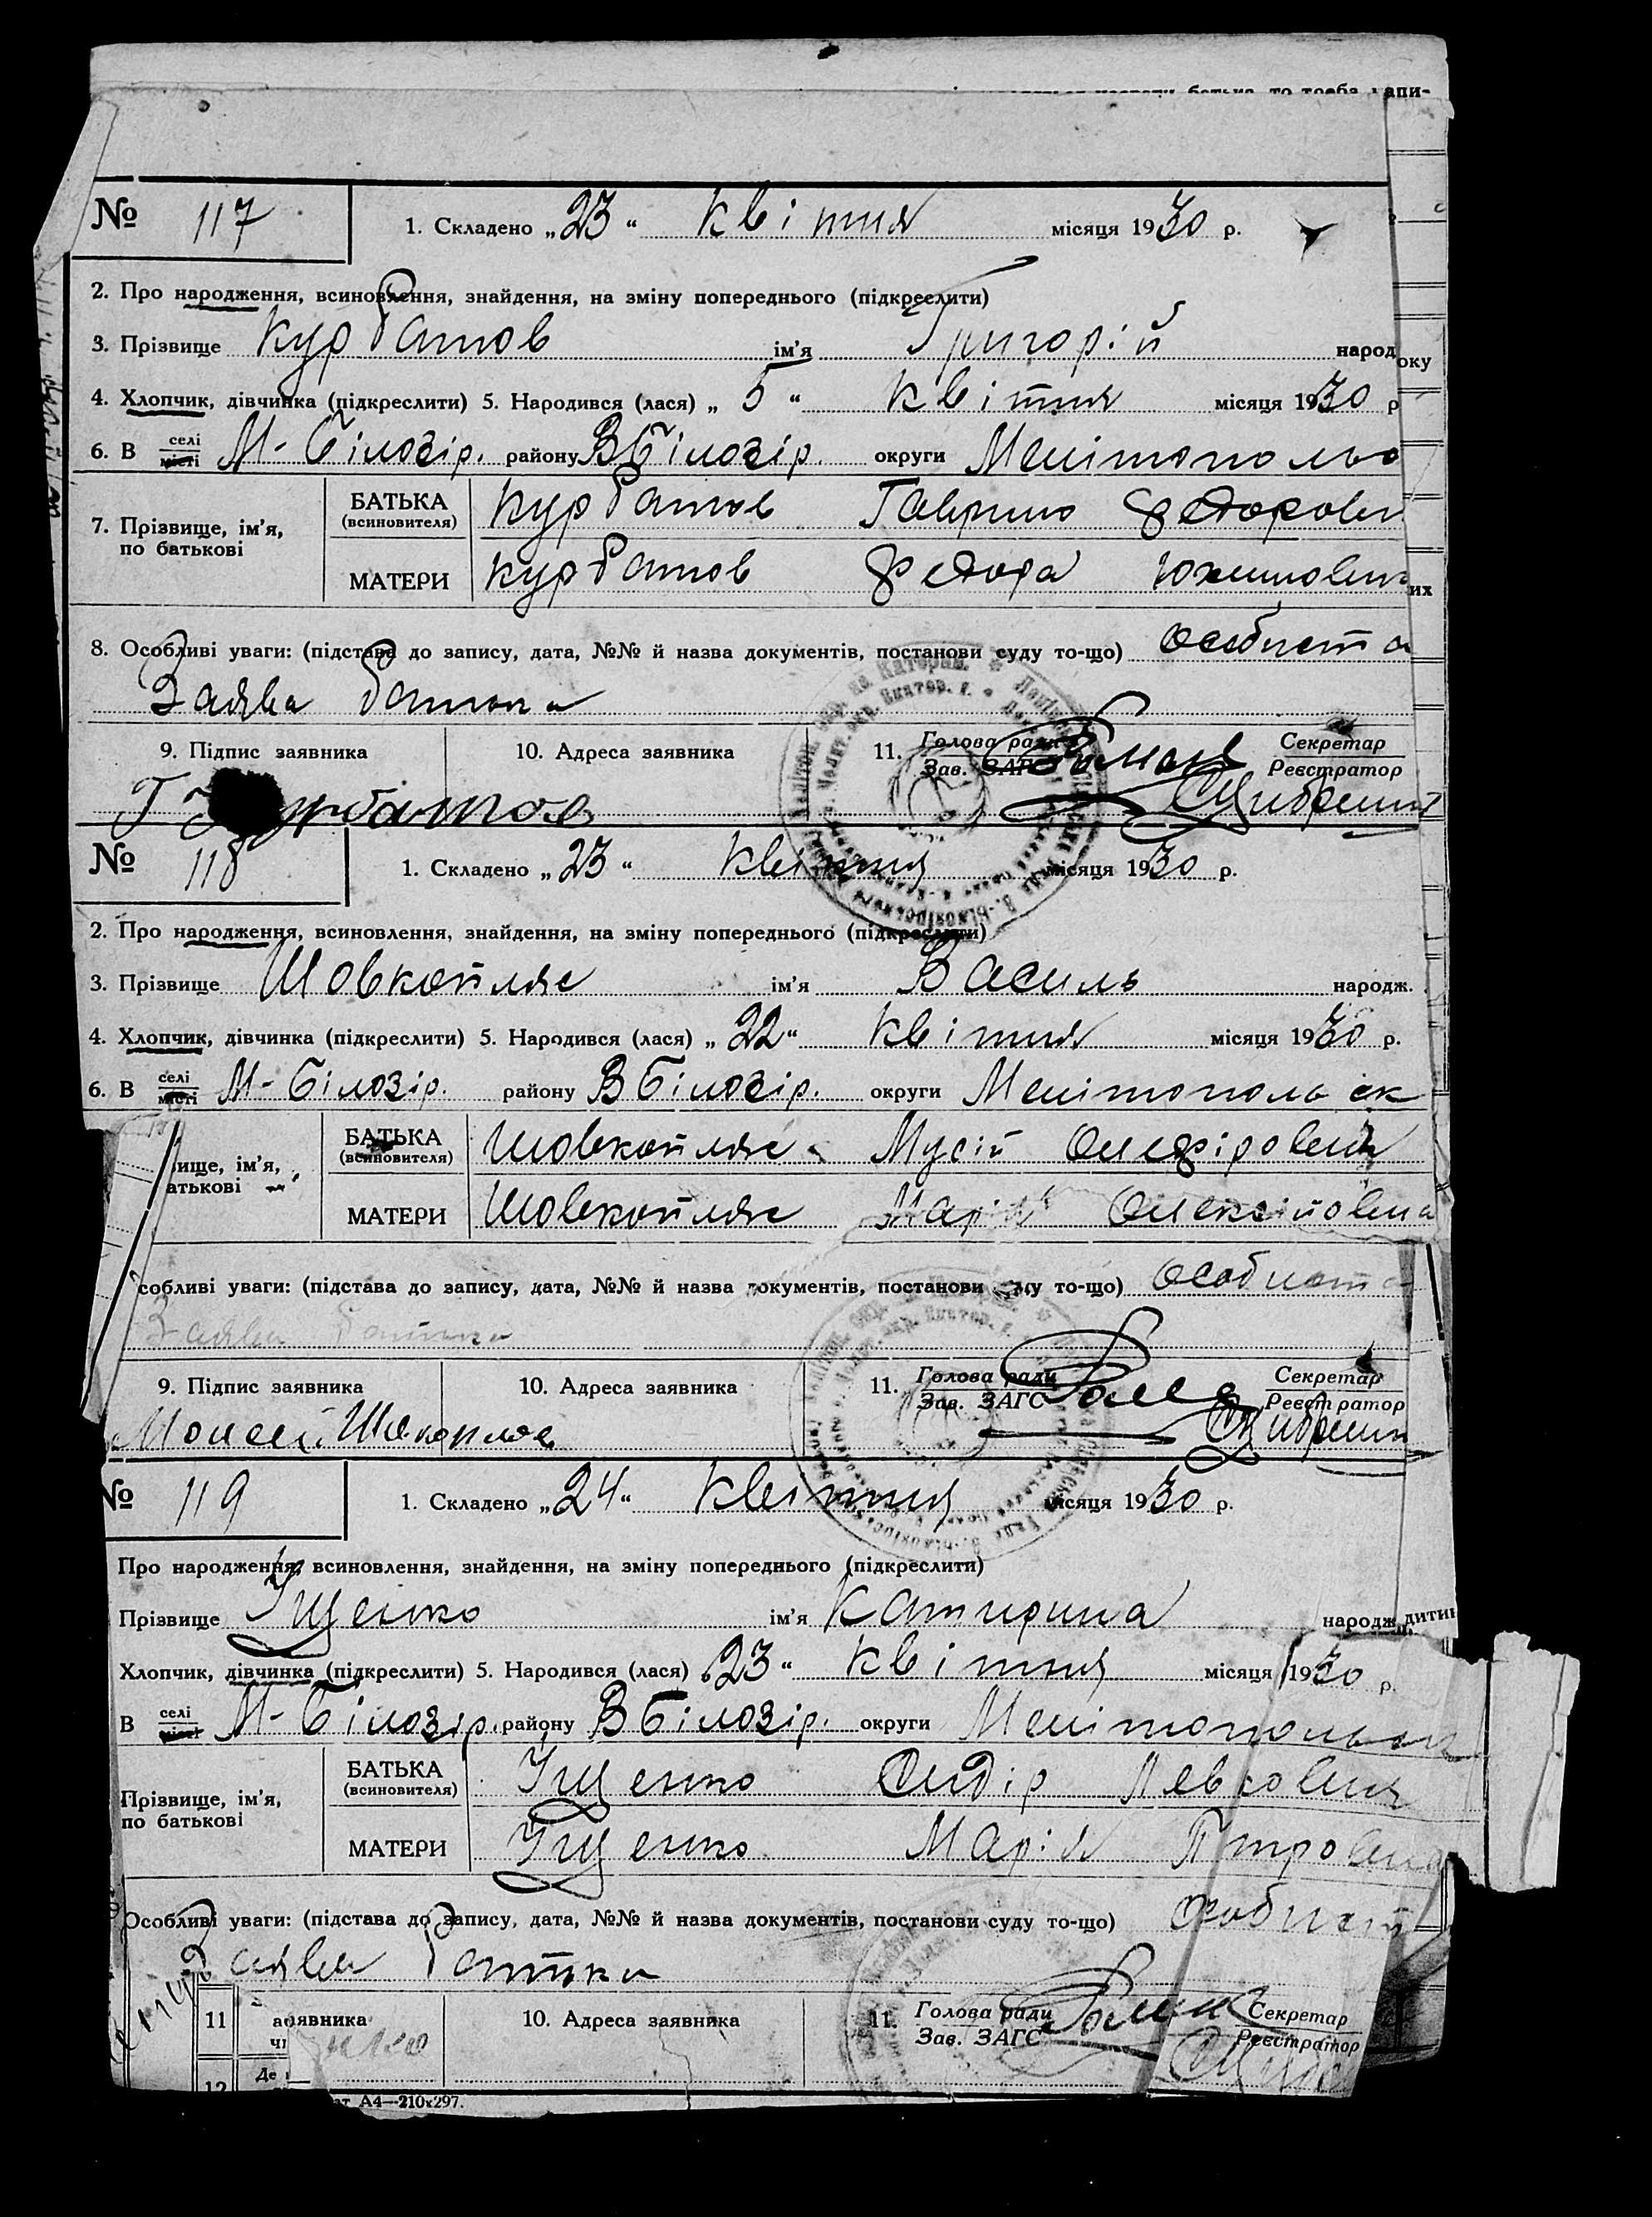 батька, то треба запи-
№ 117 1. Складено „23“ квітня місяця 1930 р.
2. Про народження, всиновлення, знайдення, на зміну попереднього (підкреслити)
3. Прізвище Курбатов ім'я Григорій народ
оку
4. Хлопчик, дівчинка (підкреслити) 5. Народився (лася) „5“ квітня місяця 1930 р
6. В селі місті М-Білозір. району ВБілозір. округи Мелітополь
7. Прізвище, ім'я, по батькові
БАТЬКА (всиновителя) Курбатов Гаврило Федорович
МАТЕРИ Курбатов Федора
их
8. Особливі уваги: (підстава до запису, дата, №№ й назва документів, постанови суду то-що) Особиста
Заява батька
9. Підпис заявника 10. Адреса заявника 11. Голова ради Зав. ЗАГС Секретар Реєстратор
Г Курбатов
№ 118 1. Складено „23“ квітня місяця 1930 р.
2. Про народження, всиновлення, знайдення, на зміну попереднього (підкреслити)
3. Прізвище Шовкопляс ім'я Василь народж.
4. Хлопчик, дівчинка (підкреслити) 5. Народився (лася) „22“ квітня місяця 1930 р.
6. В селі місті М-Білозір. району ВБілозір. округи Мелітопольск
вище, ім'я, атькові
БАТЬКА (всиновителя) Шовкопляс Мусій Онефірович
МАТЕРИ Шовкопляс Марія Олексіївна
собливі уваги: (підстава до запису, дата, №№ й назва документів, постанови суду то-що) Особиста
Заява батька
9. Підпис заявника 10. Адреса заявника 11. Голова ради Зав. ЗАГС Секретар Реєстратор
Моисей
№ 119 1. Складено „24“ квітня місяця 1930 р.
Про народження, всиновлення, знайдення, на зміну попереднього (підкреслити)
Прізвище Іщенко ім'я Катирина народж. дитин
Хлопчик, дівчинка (підкреслити) 5. Народився (лася) „23“ квітня місяця 1930 р.
В селі місті М-Білозір. району ВБілозір. округи Мелітопольск
Прізвище, ім'я, по батькові
БАТЬКА (всиновителя) Іщенко Сидір Левкович
МАТЕРИ Іщенко Марія Петровна
Особливі уваги: (підстава до запису, дата, №№ й назва документів, постанови суду то-що) Особист
Заява батька
11 аявника 10. Адреса заявника 11. Голова ради Зав. ЗАГС Секретар Реєстратор
12 Де
ат А4—210х297.